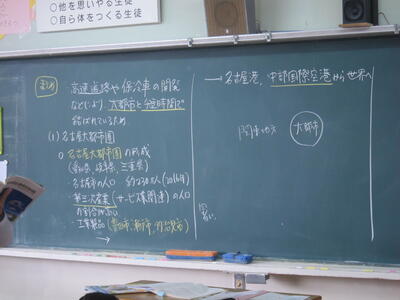 ○他を思いやる生徒
○自ら体をつくる生徒
まとめ
高速道路や保冷車の開発
などにより、大都市と短時間で
結ばれているため
(1) 名古屋大都市圏
○ 名古屋大都市圏の形成
(愛知県、岐阜県、三重県)
・名古屋市の人口 約230万人(2016年)
・第三次産業(サービス業関連)の人口
の割合が高い
・工業製品
→
→ 名古屋港、中部国際空港から世界へ
関東地方
大都市